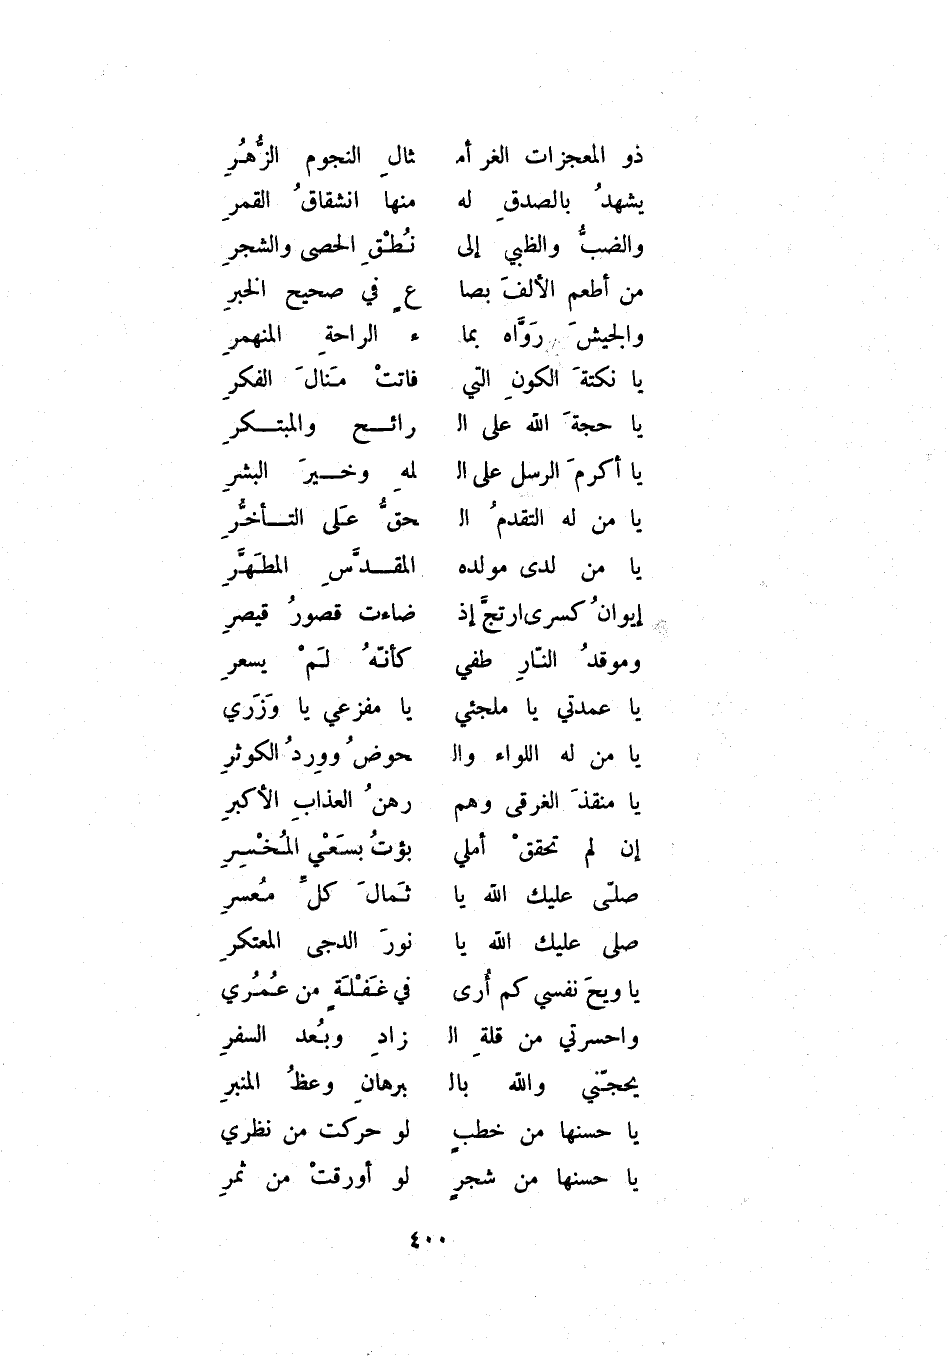 ذو المعجزات الغر أمـ ثالِ النجوم الزُّهُرِ
يشهدُ بالصدقِ له منها انشقاقُ القمرِ
والضبُّ والظبي إلى نُطْقِ الحصى والشجرِ
من أطعم الألفَ بصا عٍ في صحيح الخبرِ
والجيشَ رَوَّاه بما ء الراحةِ المنهمرِ
يا نكتةَ الكونِ التي فاتتْ مَنالَ الفكرِ
يا حجةَ الله على الـ رائح والمبتكرِ
يا أكرمَ الرسل على الـ لهِ وخيرَ البشرِ
يا من له التقدمُ الـ حقُّ عَلى التأخُّرِ
يا من لدى مولده المقدَّسِ المطَهَّرِ
إيوانُ كسرى ارتجَّ إذ ضاءت قصورُ قيصرِ
وموقدُ النّارِ طفي كأنّهُ لَمْ يسعرِ
يا عمدتي يا ملجئي يا مفزعي يا وَزَري
يا من له اللواء والـ حوضُ ووِردُ الكوثرِ
يا منقذَ الغرقى وهم رهنُ العذابِ الأكبرِ
إن لم تحققْ أملي بؤتُ بسَعْيِ المُخْسِرِ
صلّى عليك الله يا ثَمالَ كلِّ مُعسرِ
صلى عليك الله يا نورَ الدجى المعتكرِ
يا ويحَ نفسي كم أُرى في غَفْلَةٍ من عُمُري
واحسرتي من قلةِ الـ زادِ وبُعد السفرِ
يحجّني والله بالـ برهانِ وعظُ المنبرِ
يا حسنها من خطبٍ لو حركت من نظري
يا حسنها من شجرٍ لو أورقتْ من ثمرِ
٤٠٠